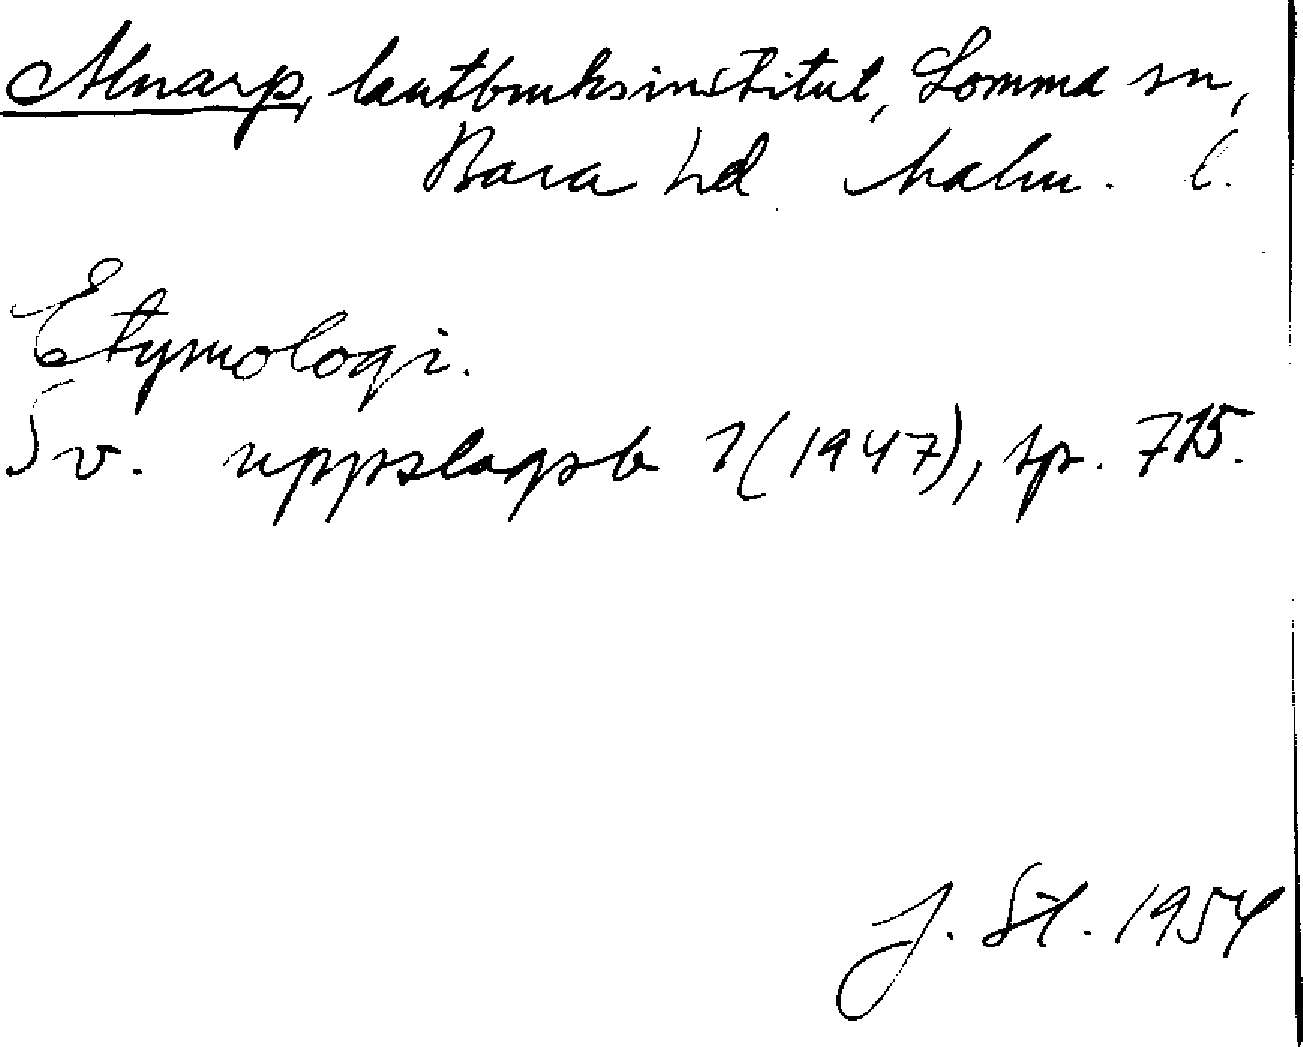 Alnarp, lantbruksinstitut, Lomma sn,
Bara hd. Malm. l.
Etymologi.
Sv. uppslagsb 1(1947), sp. 715.
J. Sl. 1954